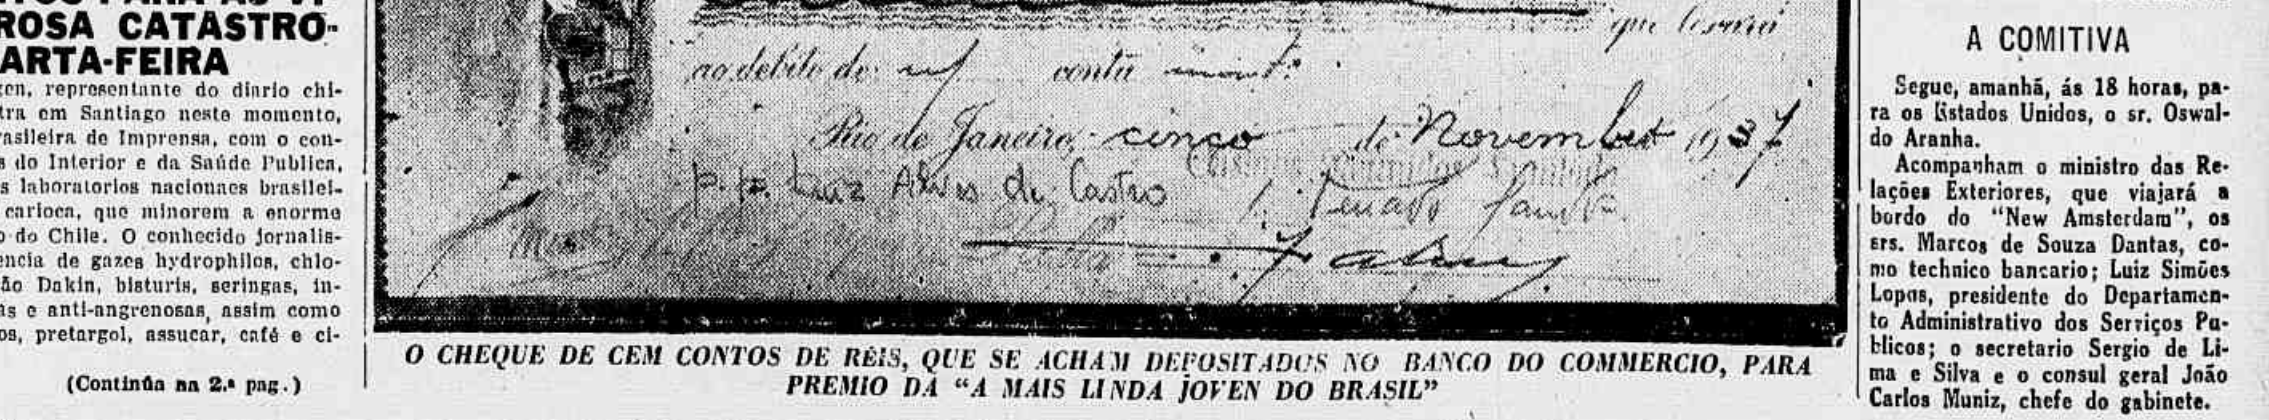 ROSA CATASTRO-
ARTA-FEIRA
gen, representante do diario chi-
tra em Santiago neste momento,
rasileira de Imprensa, com o con-
s do Interior e da Saúde Publica,
s laboratorios nacionaes brasilei-
carioca, que minorem a enorme
o do Chile. O conhecido jornalis-
encia de gazes hydrophilos, chlo-
ão Dakin, bisturis, seringas, in-
as e anti-angrenosas, assim como
os, pretargol, assucar, café e ci-
(Continúa na 2.ª pag.)
que levará
ao debito de m/ conta
Rio de Janeiro, cinco de Novembro 1937
p.p. Luiz Alves de Castro
O CHEQUE DE CEM CONTOS DE RÉIS, QUE SE ACHAM DEPOSITADOS NO BANCO DO COMMERCIO, PARA
PREMIO DA "A MAIS LINDA JOVEN DO BRASIL"
A COMITIVA
Segue, amanhã, ás 18 horas, pa-
ra os Estados Unidos, o sr. Oswal-
do Aranha.
Acompanham o ministro das Re-
lações Exteriores, que viajará a
bordo do "New Amsterdam", os
srs. Marcos de Souza Dantas, co-
mo technico bancario; Luiz Simões
Lopes, presidente do Departamen-
to Administrativo dos Serviços Pu-
blicos; o secretario Sergio de Li-
ma e Silva e o consul geral João
Carlos Muniz, chefe do gabinete.